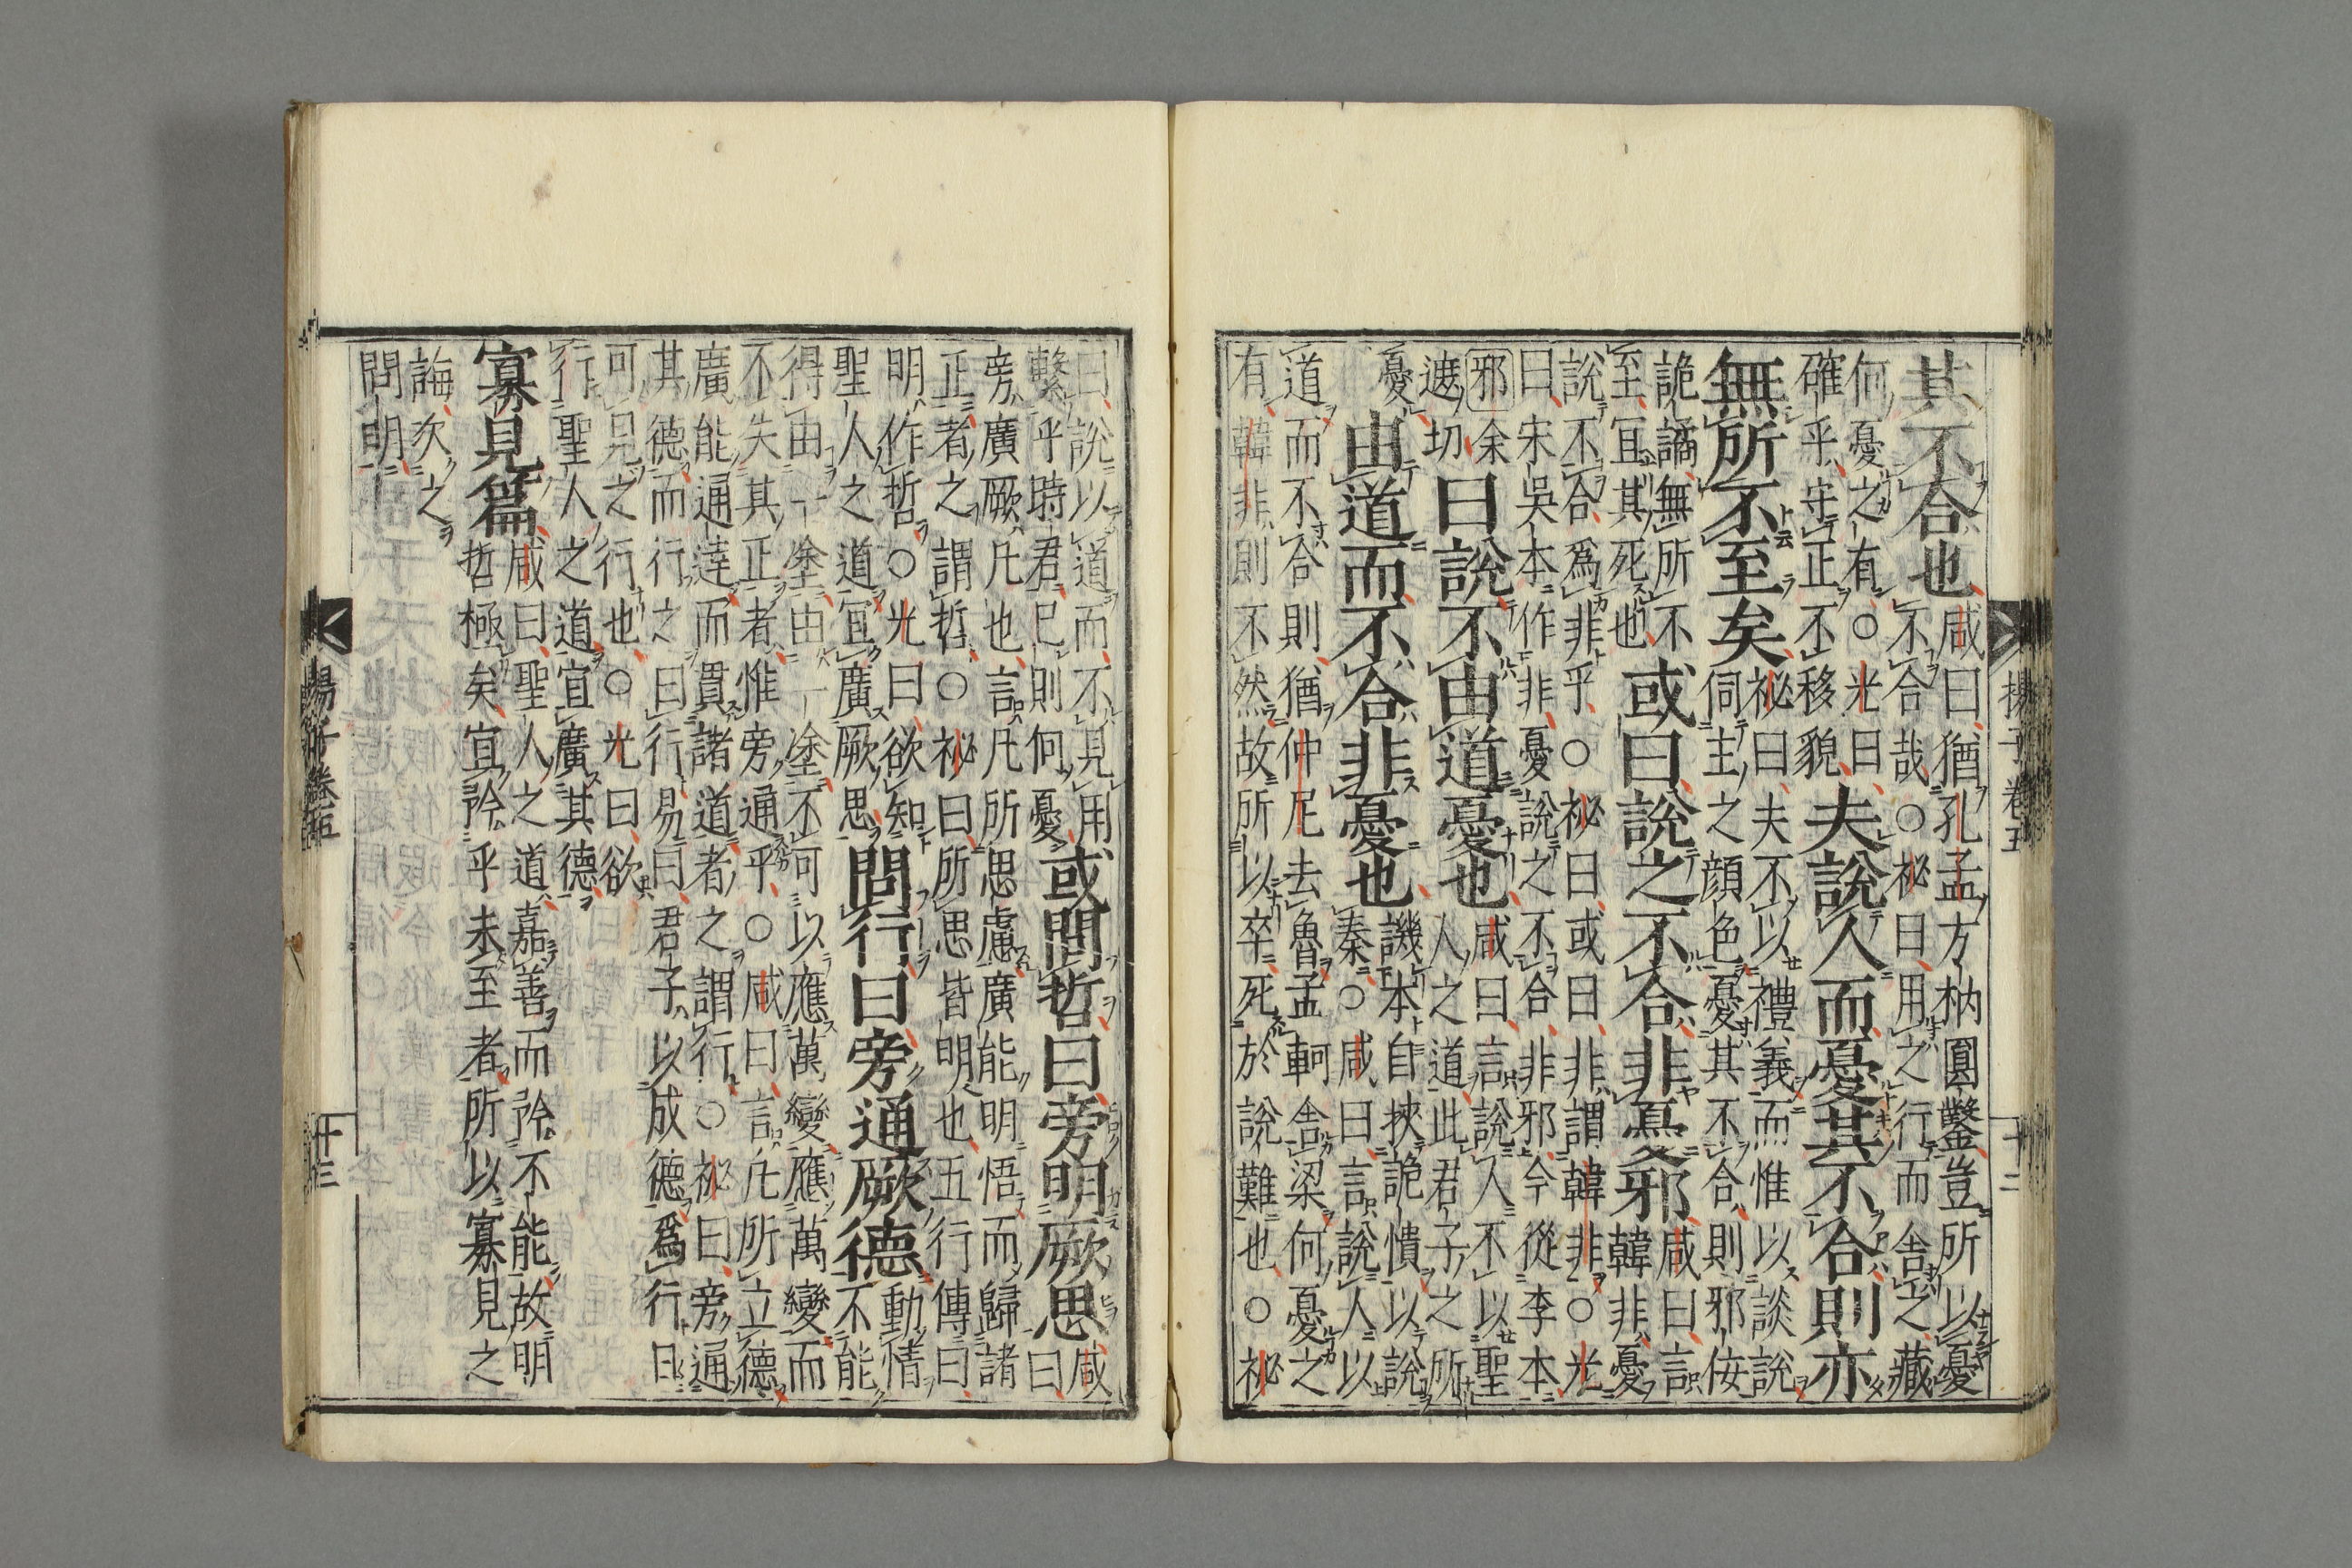 揚子卷五　十二
其不合也
咸曰猶孔孟方枘圓鑿豈所以憂
不合哉○祕曰用之行而舍之藏
何憂之有○光曰
確乎守正不移貌
夫說人而憂其不合則亦
無所不至矣
祕曰夫不以禮義而惟以談說
伺主之顔色憂其不合則邪佞
詭譎無所不
至宜其死也
或曰說之不合非憂邪
咸曰言
韓非憂
說不合爲非乎○祕曰或曰非謂韓非○光
曰宋吳本作非憂說之不合非邪今從李本
邪余
遮切
曰說不由道憂也
咸曰言說人不以聖
人之道此君子之所
憂
由道而不合非憂也
譏本自挾詭憒以說
秦○咸曰言說人以
道而不合則猶仲尼去魯孟軻舍梁何憂之
有韓非則不然故所以卒死於說難也○祕
曰說以道而不見用
繫乎時君已則何憂
或問哲曰旁明厥思
咸
曰
旁廣厥凡也言凡所思慮廣能明悟而歸諸
正者之謂哲○祕曰所思皆明也五行傳曰
明作哲○光曰欲知
聖人之道宜廣厥思
問行曰旁通厥德
動情
不能
得由一塗由一塗不可以應萬變應萬變而
不失其正者惟旁通乎○咸曰言凡所立德
廣能通達而買諸道者之謂行○祕曰旁通
其德而行之曰行易曰君子以成德爲行日
可見之行也○光曰欲
行聖人之道宜廣其德
寡見篇
咸曰聖人之道嘉善而矜不能故明
哲極矣宜矜乎未至者所以寡見之
誨次之
問明
揚子卷五　十三